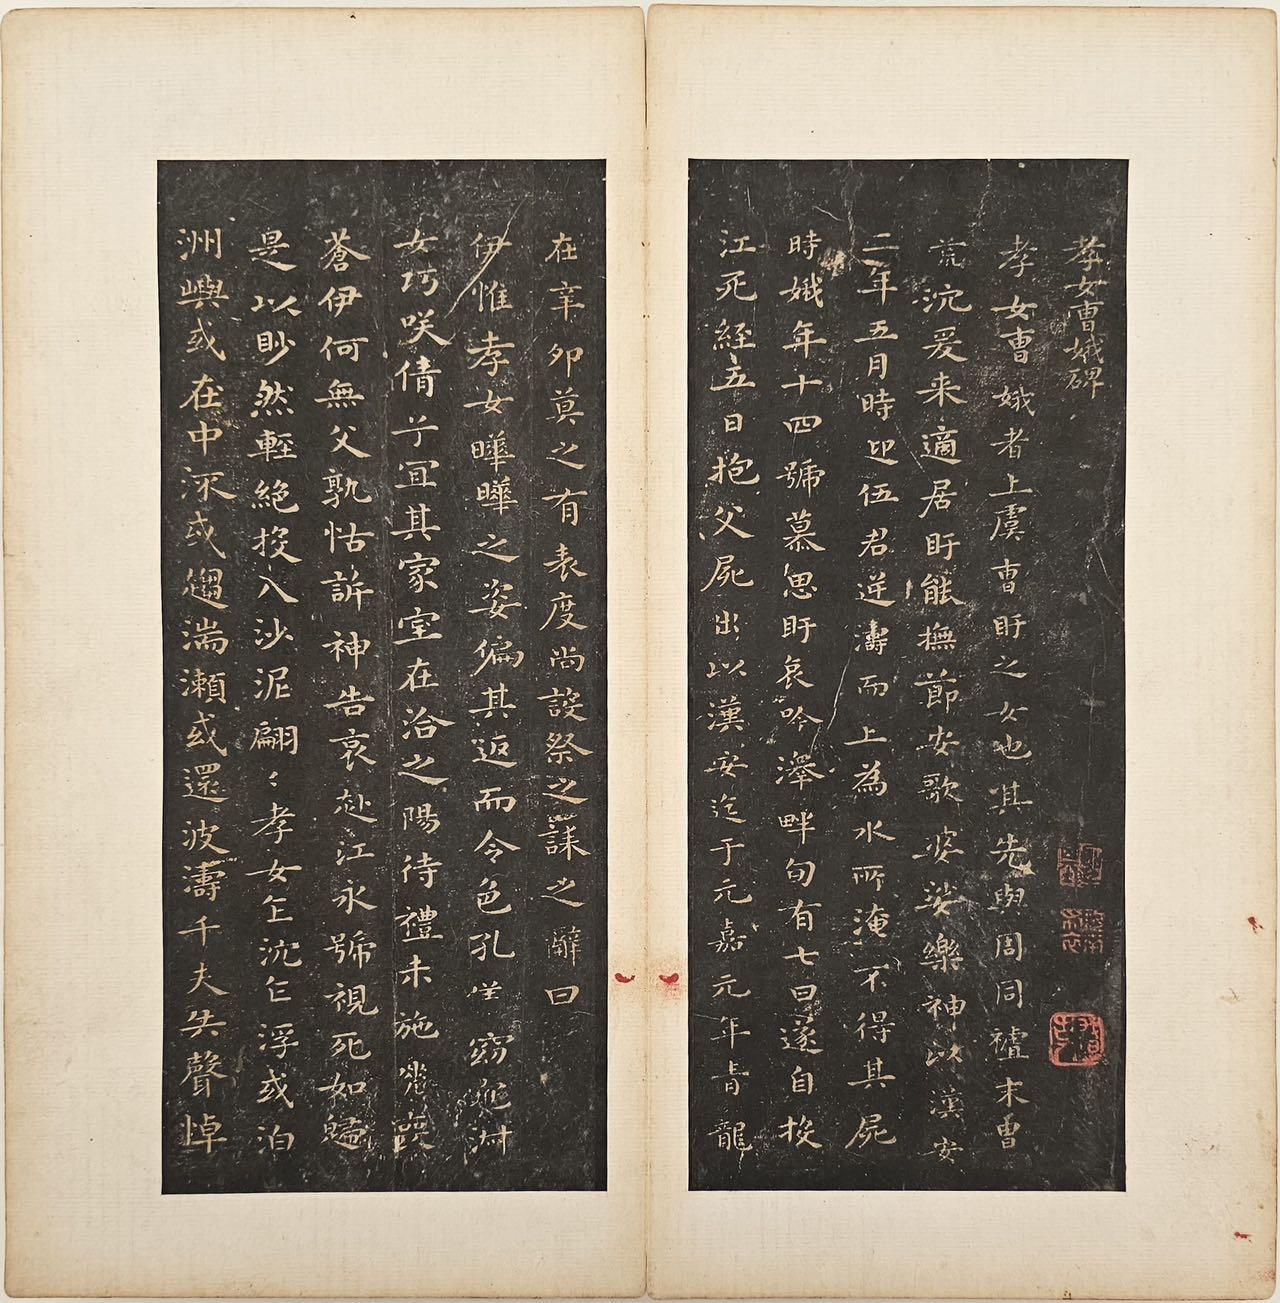 孝女曹娥碑
孝女曹娥者上虞曹盱之女也其先與周同禮末曹
荒沉爰来適居盱能撫節安歌婆娑樂神以漢安
二年五月時迎伍君逆濤而上為水所淹不得其屍
時娥年十四號慕思盱哀吟澤畔旬有七日遂自投
江死經五日抱父屍出以漢安迄于元嘉元年青龍
在辛卯莫之有表度尚設祭之誄之辭曰
伊惟孝女曄曄之姿偏其返而令色孔儀窈窕淑
女巧咲倩兮宜其家室在洽之陽待禮未施嗟喪
蒼伊何無父孰怙訴神告哀赴江永號視死如歸
是以眇然輕絕投入沙泥翩〻孝女乍沈乍浮或泊
洲嶼或在中流或趨湍瀨或還波濤千夫失聲悼